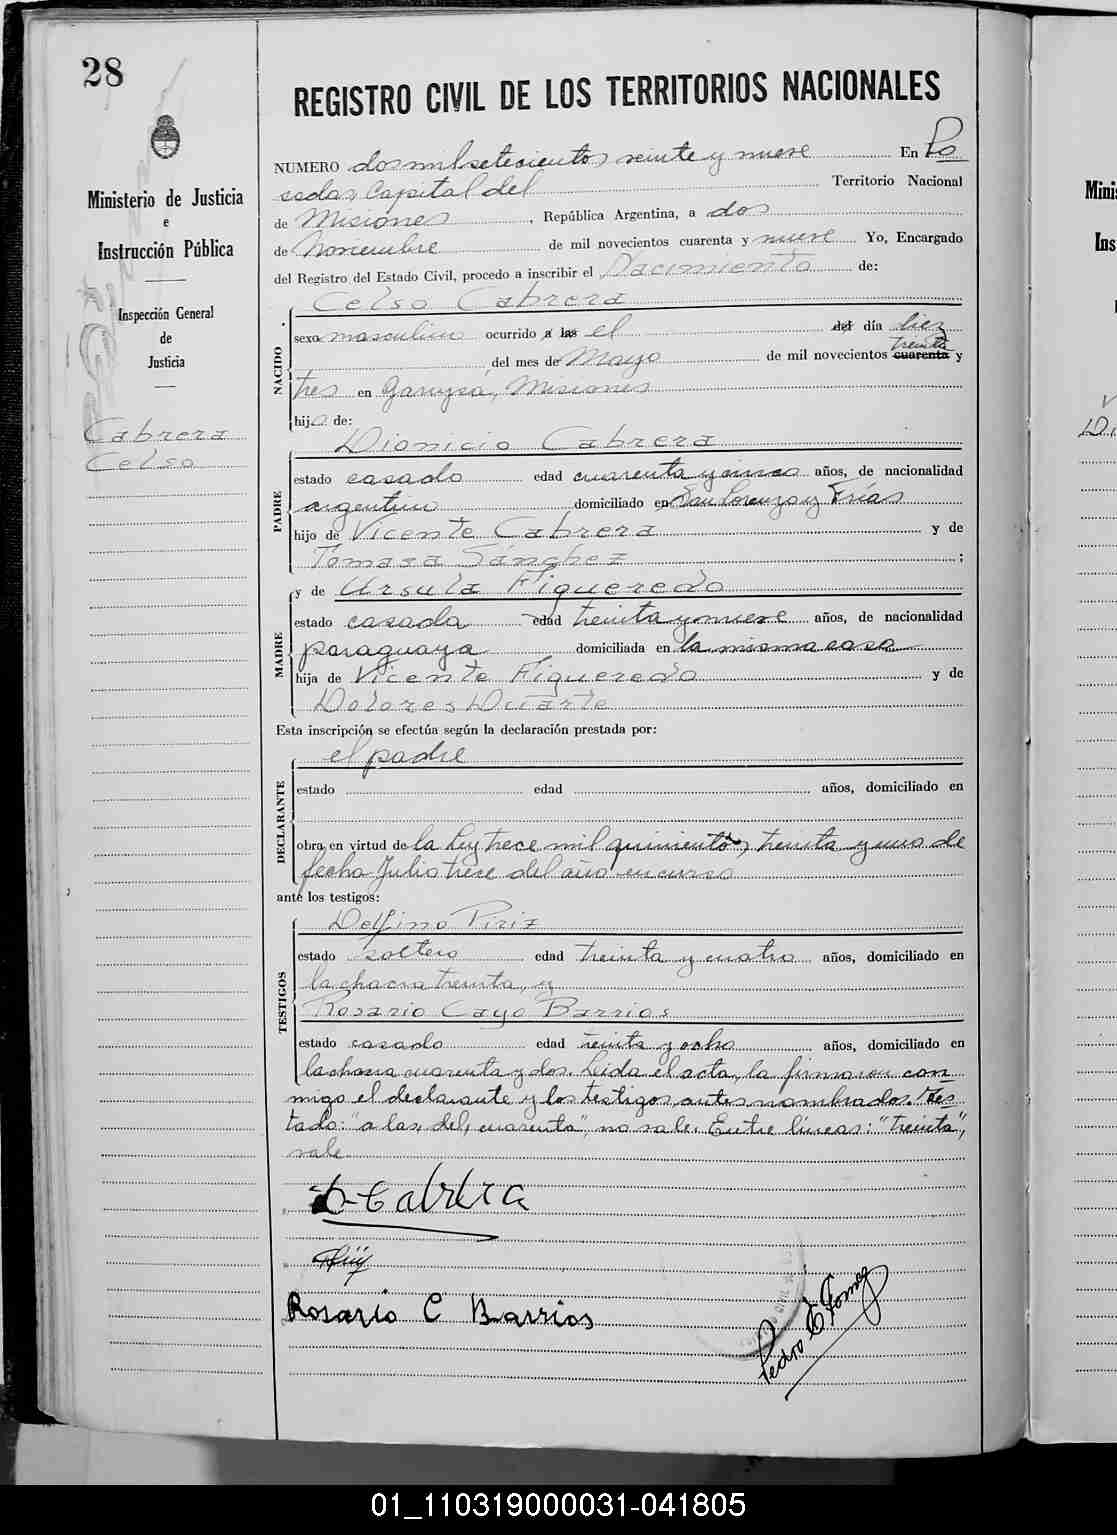 28
REGISTRO CIVIL DE LOS TERRITORIOS NACIONALES
Ministerio de Justicia
e
Instrucción Pública
Inspección General
de
Justicia
Cabrera
Celso
NUMERO dos mil setecientos veinte y nueve En Po
sadas, Capital del Territorio Nacional
de Misiones, República Argentina, a dos
de Noviembre de mil novecientos cuarenta y nueve Yo, Encargado
del Registro del Estado Civil, procedo a inscribir el Nacimiento de:
Celso Cabrera
NACIDO
sexo masculino ocurrido a las el del día diez
treinta
del mes de Mayo de mil novecientos cuarenta y
tres en Garupá, Misiones
hijo de:
Dionicio Cabrera
PADRE
estado casado edad cuarenta y cinco años, de nacionalidad
argentino domiciliado en San Lorenzo y Frías
hijo de Vicente Cabrera y de
Tomasa Sánchez ;
y de Ursula Figueredo
MADRE
estado casada edad treinta y nueve años, de nacionalidad
paraguaya domiciliada en la misma casa
hija de Vicente Figueredo y de
Dolores Duarte
Esta inscripción se efectúa según la declaración prestada por:
el padre
DECLARANTE
estado edad años, domiciliado en
obra, en virtud de la Ley trece mil quinientos treinta y uno de
fecha Julio trece del año en curso
ante los testigos:
Delfino Piriz
TESTIGOS
estado soltero edad treinta y cuatro años, domiciliado en
la chacra treinta, y
Rosario Cayo Barrios
estado casado edad treinta y ocho años, domiciliado en
la chacra cuarenta y dos. Leida el acta, la firmaron con
migo el declarante y los testigos antes nombrados. Tes
tado: "a las, del, cuarenta", no vale. Entre líneas: "treinta",
vale
D Cabrera
Rosario C Barrios
Pedro E Gomez
01_110319000031-041805